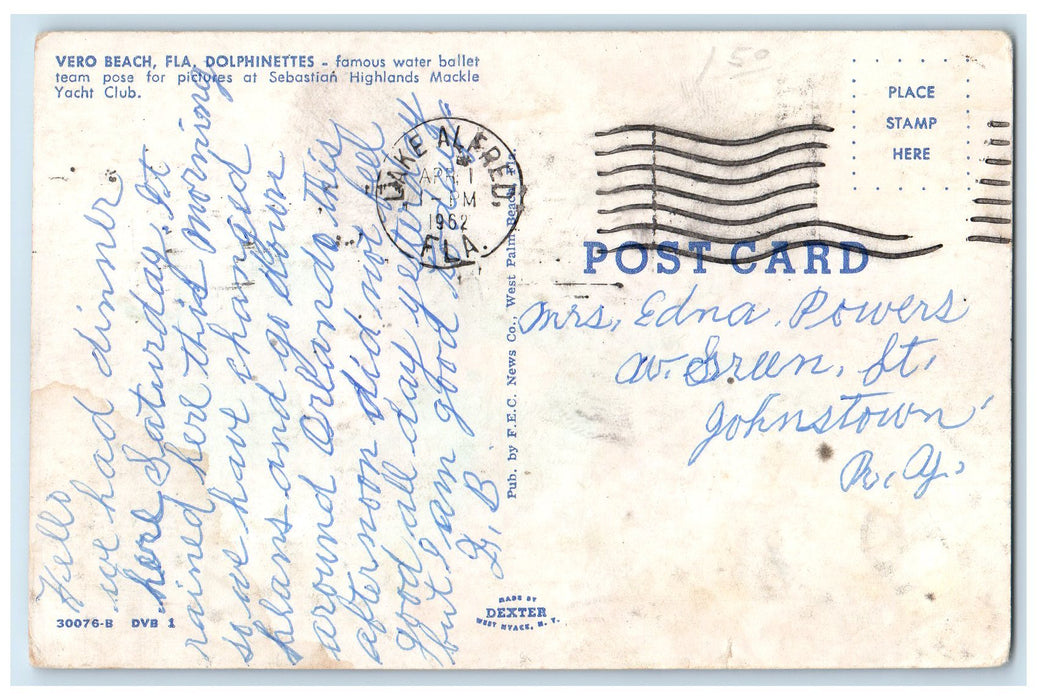 VERO BEACH, FLA. DOLPHINETTES - famous water ballet
team pose for pictures at Sebastian Highlands Mackle
Yacht Club.
1 50
PLACE
STAMP
HERE
LAKE ALFRED
APR 1
PM
1962
FLA.
POST CARD
Mrs. Edna Powers
W. Green. St.
Johnstown
N. Y.
Hello
we had dinner
here Saturday. It
rained here this morning
so we have changed
plans and go down
around Orlando this
afternoon did not feel
good all day yesterday
but I am good today.
Z. B
Pub. by F.E.C. News Co., West Palm Beach, Fla.
30076-B DVB 1
MADE BY
DEXTER
WEST NYACK, N. Y.